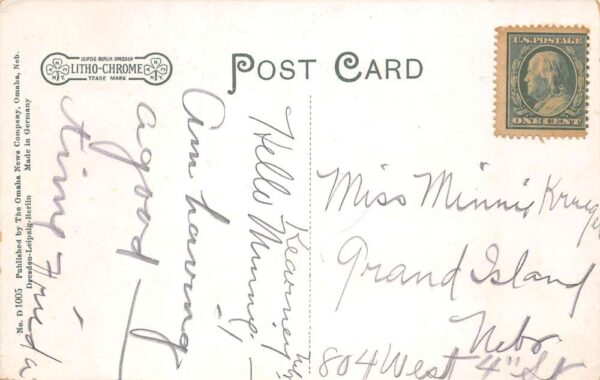 LEIPZIG BERLIN DRESDEN
LITHO-CHROME
TRADE MARK
N.Y.
N.Y.
POST CARD
U.S. POSTAGE
ONE CENT
No. D 1005 Published by The Omaha News Company, Omaha, Neb.
Dresden-Leipzig-Berlin Made in Germany
Kearney
Hello Minnie,
Am having
a good
time
Frieda
Miss Minnie Krueger
Grand Island
Nebr
804 West 4" St